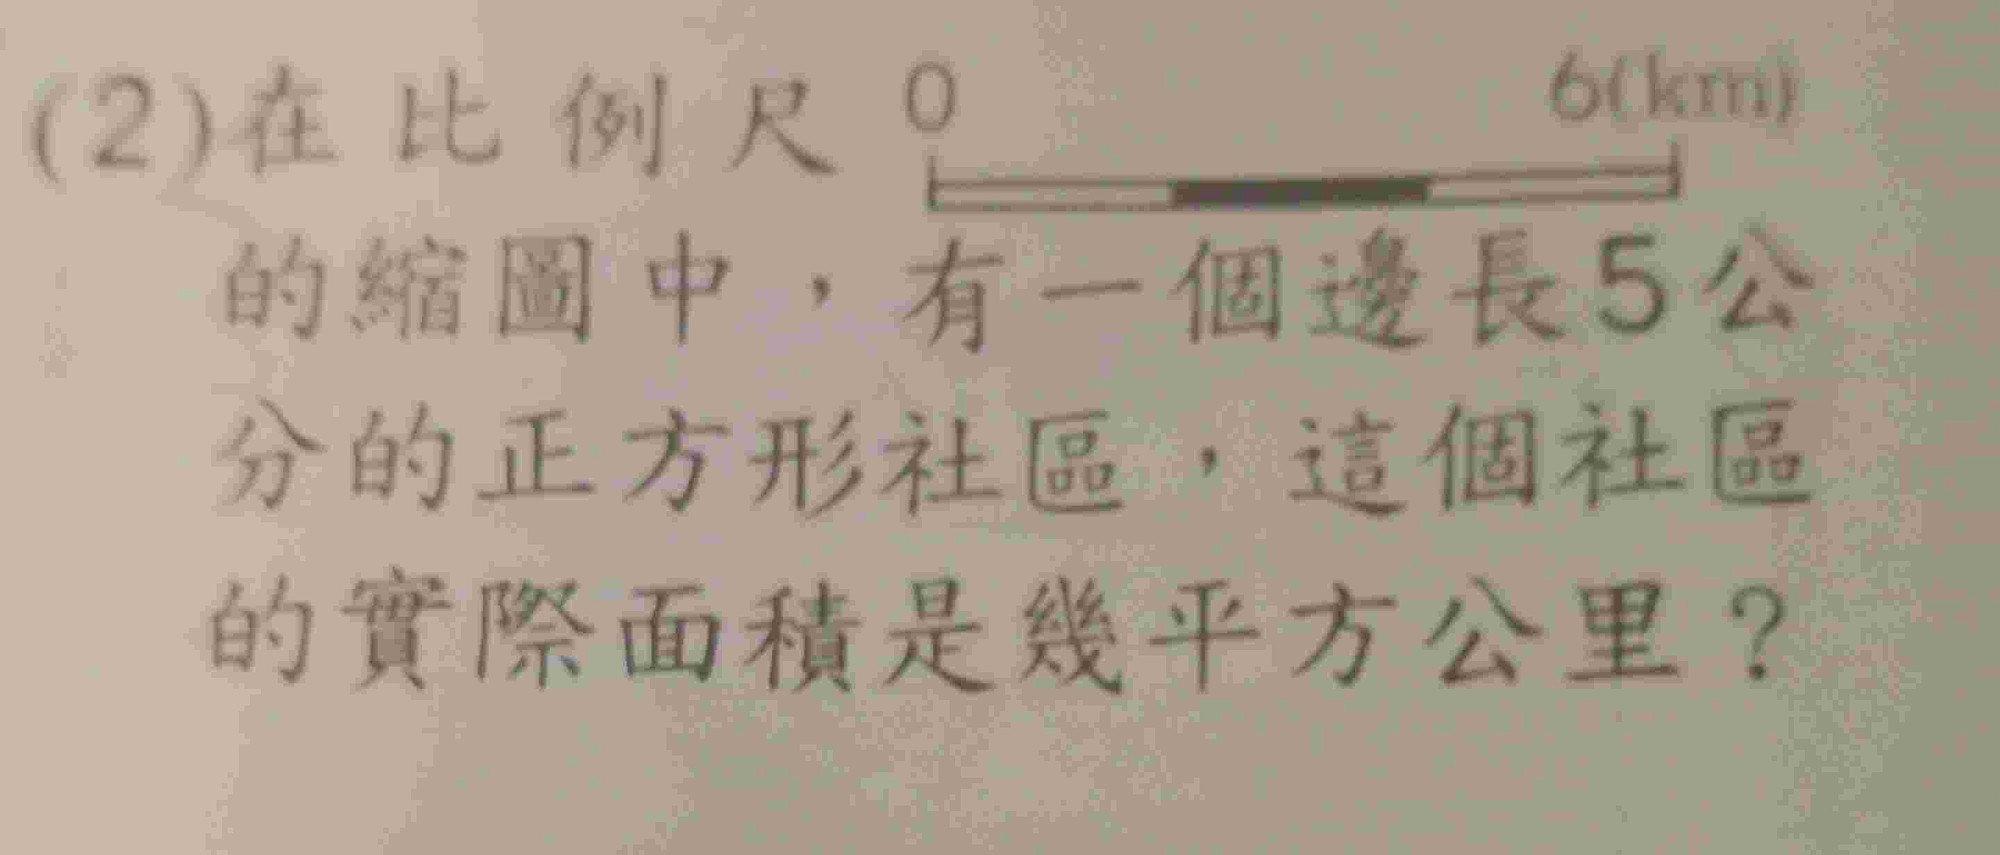 (2)在比例尺 0 6(km)
的縮圖中，有一個邊長5公
分的正方形社區，這個社區
的實際面積是幾平方公里？